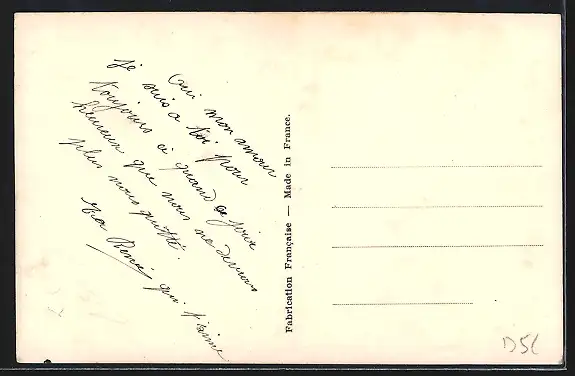 Oui mon amour
je suis a toi pour
toujours a quand ce jour
heureux que nous ne devrons
plus nous quitté.
Ta René qui t'aime
Fabrication Française — Made in France.
D5L